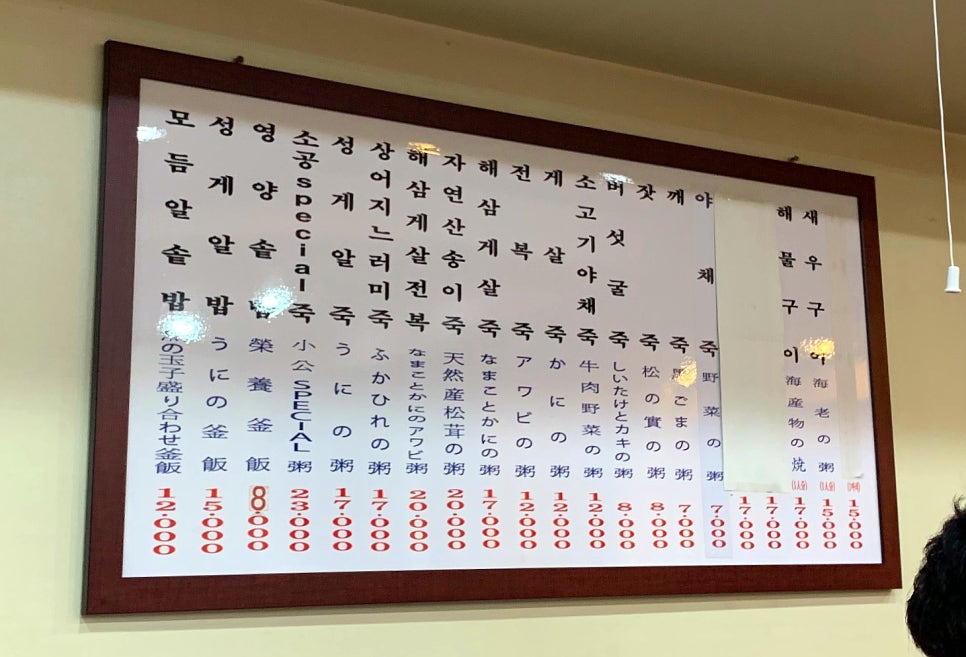 모듬알솥밥 の玉子盛り合わせ釜飯 12.000
성게알밥 うにの釜飯 15.000
영양솥밥 榮養釜飯 8.000
소공special죽 小公SPECIAL粥 23.000
성게알죽 うにの粥 17.000
상어지느러미죽 ふかひれの粥 17.000
해삼게살전복 なまことかにのアワビ粥 20.000
자연산송이죽 天然産松茸の粥 20.000
해삼게살죽 なまことかにの粥 17.000
전복죽 アワビの粥 12.000
게살죽 かにの粥 12.000
소고기야채죽 牛肉野菜の粥 12.000
버섯굴죽 しいたけとカキの粥 8.000
잣죽 松の實の粥 8.000
깨죽 黒ごまの粥 7.000
야채죽 野菜の粥 7.000
17.000
17.000
해물구이 海産物の焼 (1人分) 17.000
새우구이 海老の粥 (1人分) 15.000
15.000